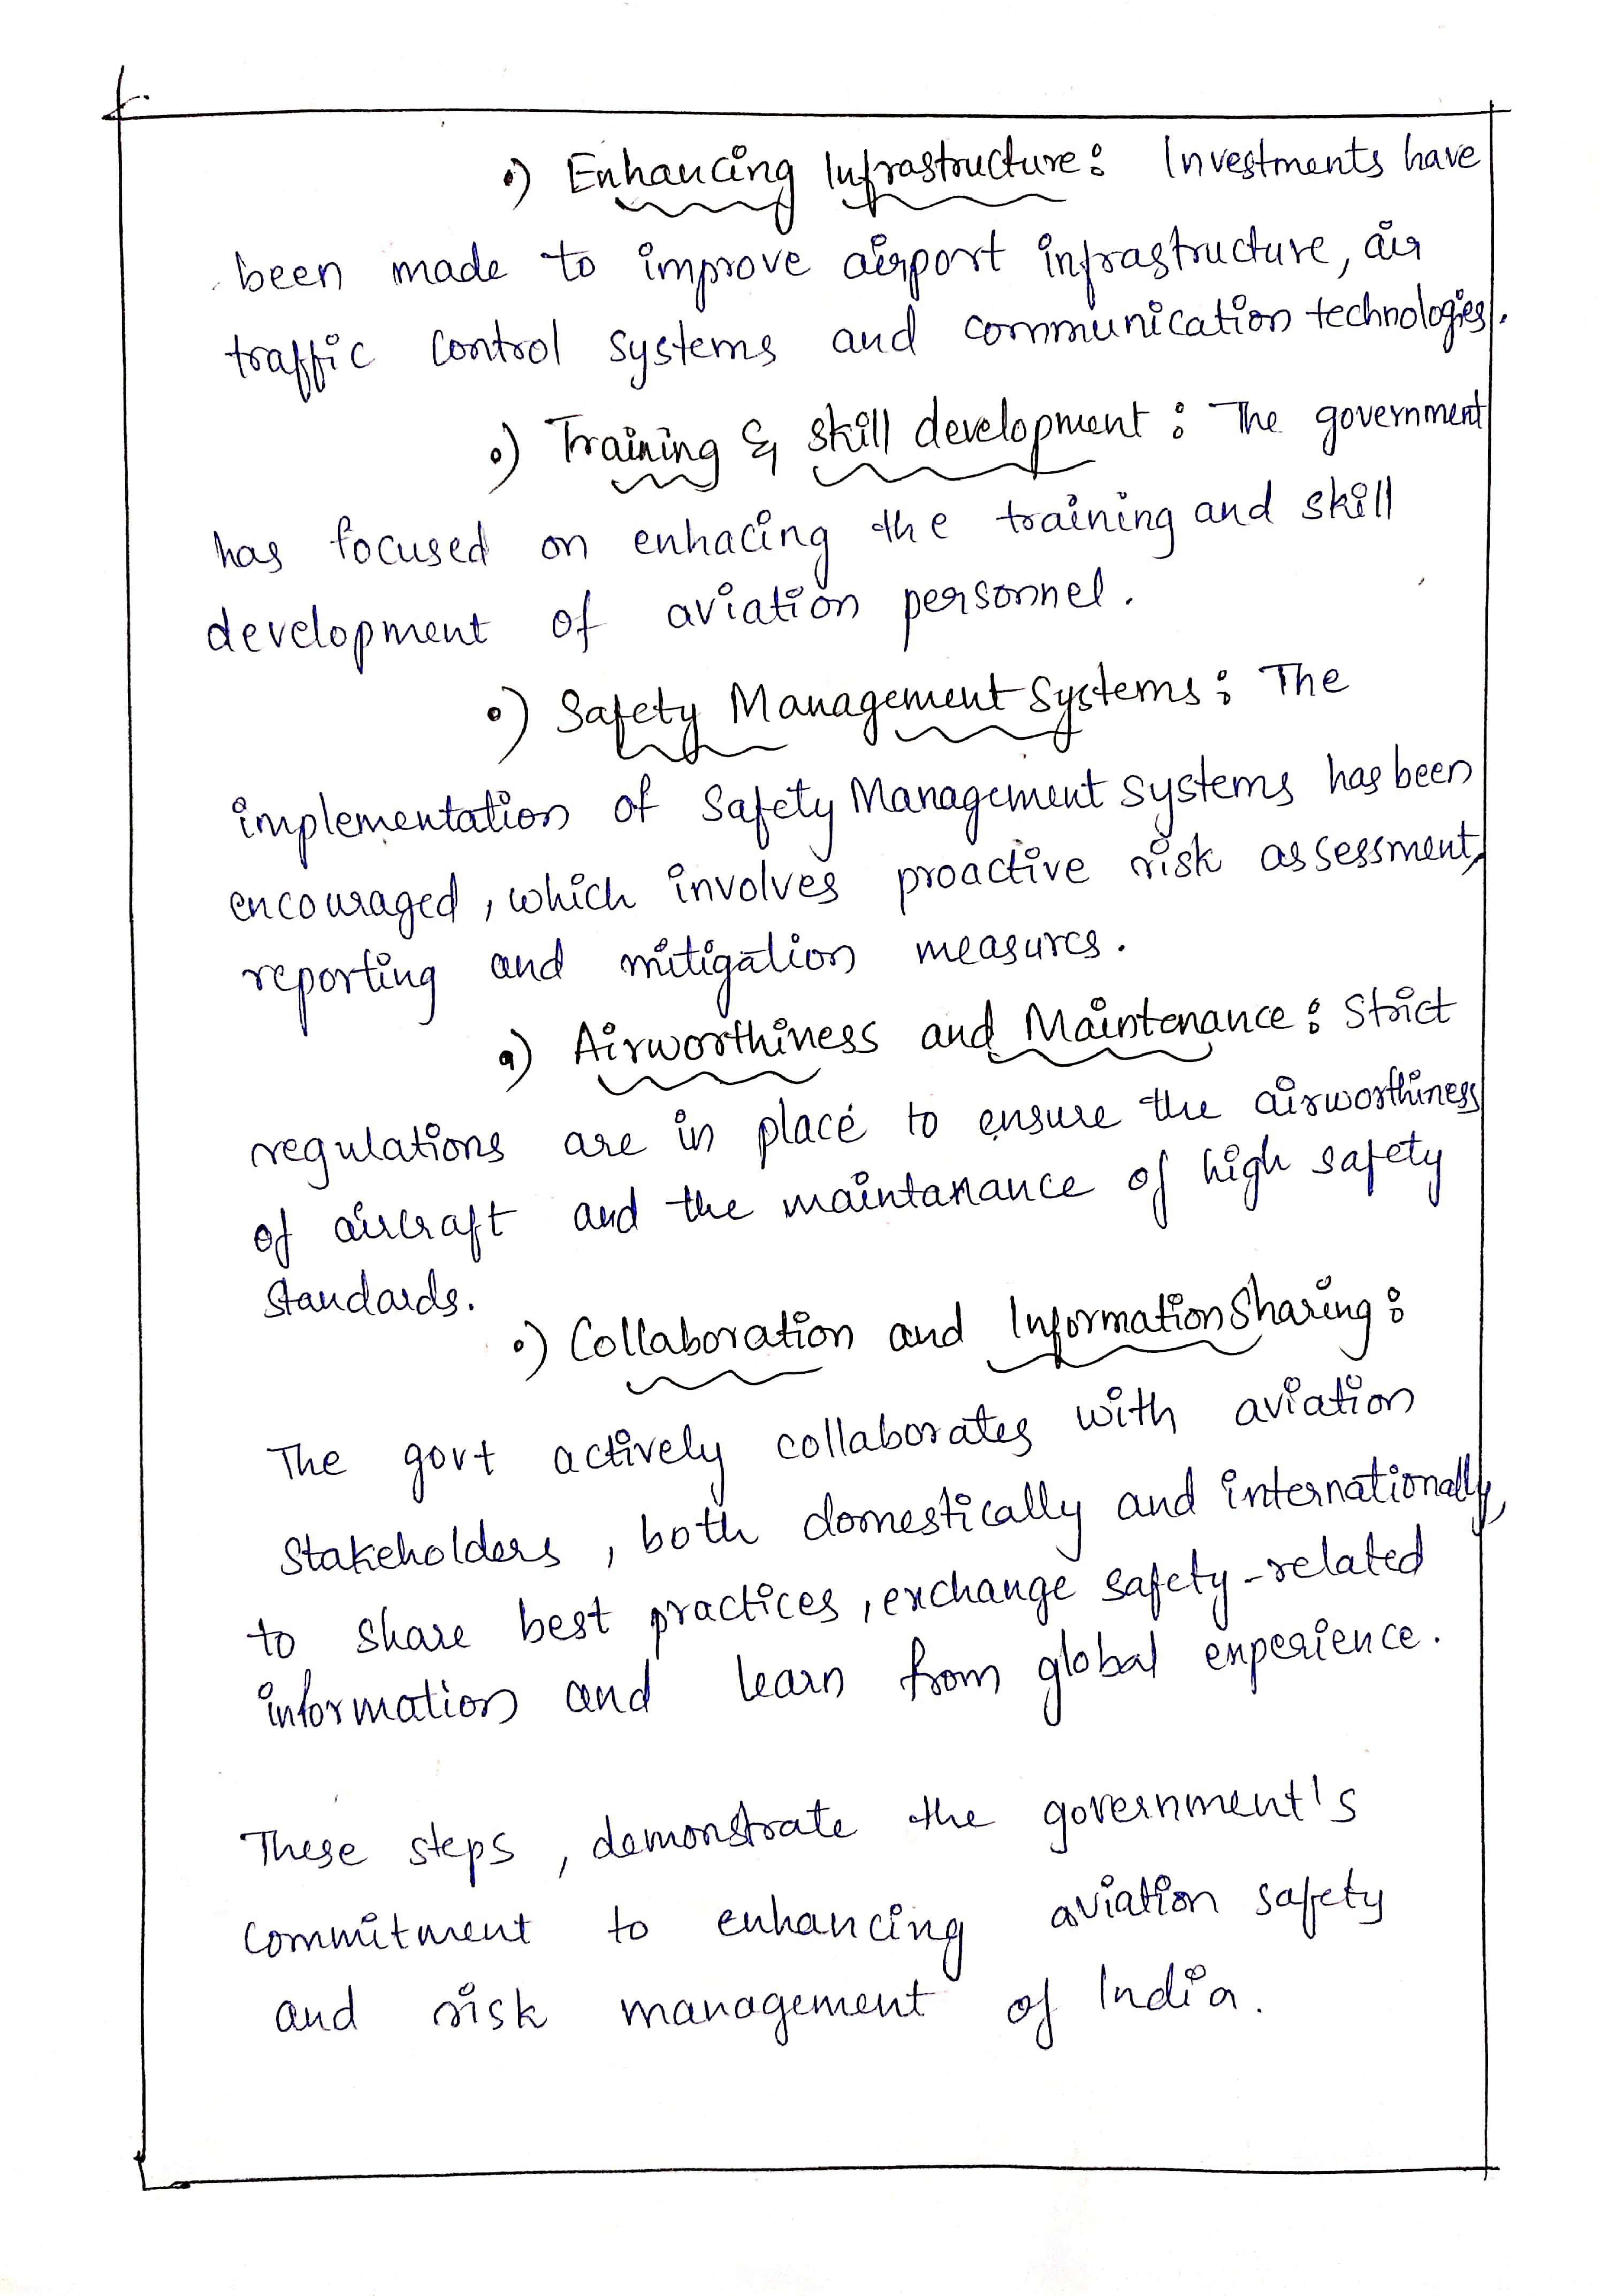 •) Enhancing Infrastructure: Investments have
been made to improve airport infrastructure, air
traffic control systems and communication technologies.
•) Training & skill development: The government
has focused on enhacing the training and skill
development of aviation personnel.
•) Safety Management Systems: The
implementation of Safety Management systems has been
encouraged, which involves proactive risk assessment,
reporting and mitigation measures.
•) Airworthiness and Maintenance: Strict
regulations are in place to ensure the airworthiness
of aircraft and the maintanance of high safety
standards.
•) Collaboration and Information Sharing:
The govt actively collaborates with aviation
stakeholders, both domestically and internationally,
to share best practices, exchange safety-related
information and learn from global experience.
These steps, demonstrate the government's
commitment to enhancing aviation safety
and risk management of India.